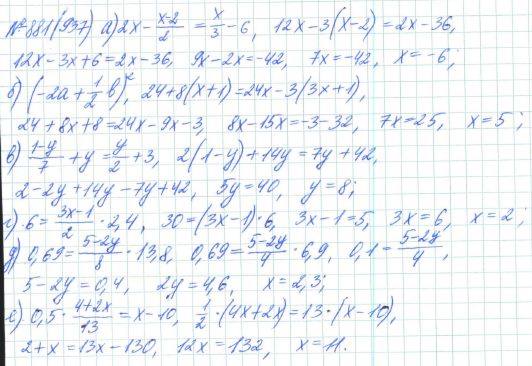 №881(937) а) 2x - \frac{x-2}{2} = \frac{x}{3} - 6, 12x - 3(x-2) = 2x - 36,
12x - 3x + 6 = 2x - 36, 9x - 2x = -42, 7x = -42, x = -6;
б) (-2a + \frac{1}{2}b)^2, 24 + 8(x+1) = 24x - 3(3x+1),
24 + 8x + 8 = 24x - 9x - 3, 8x - 15x = -3 - 32, 7x = 25, x = 5;
в) \frac{1-y}{7} + y = \frac{y}{2} + 3, 2(1-y) + 14y = 7y + 42,
2 - 2y + 14y - 7y + 42, 5y = 40, y = 8;
г) 6 = \frac{3x-1}{2} · 2,4, 30 = (3x-1)·6, 3x - 1 = 5, 3x = 6, x = 2;
д) 0,69 = \frac{5-2y}{8} · 13,8, 0,69 = \frac{5-2y}{4} · 6,9, 0,1 = \frac{5-2y}{4},
5 - 2y = 0,4, 2y = 4,6, x = 2,3;
е) 0,5 · \frac{4+2x}{13} = x - 10, \frac{1}{2} · (4x+2x) = 13 · (x-10),
2 + x = 13x - 130, 12x = 132, x = 11.